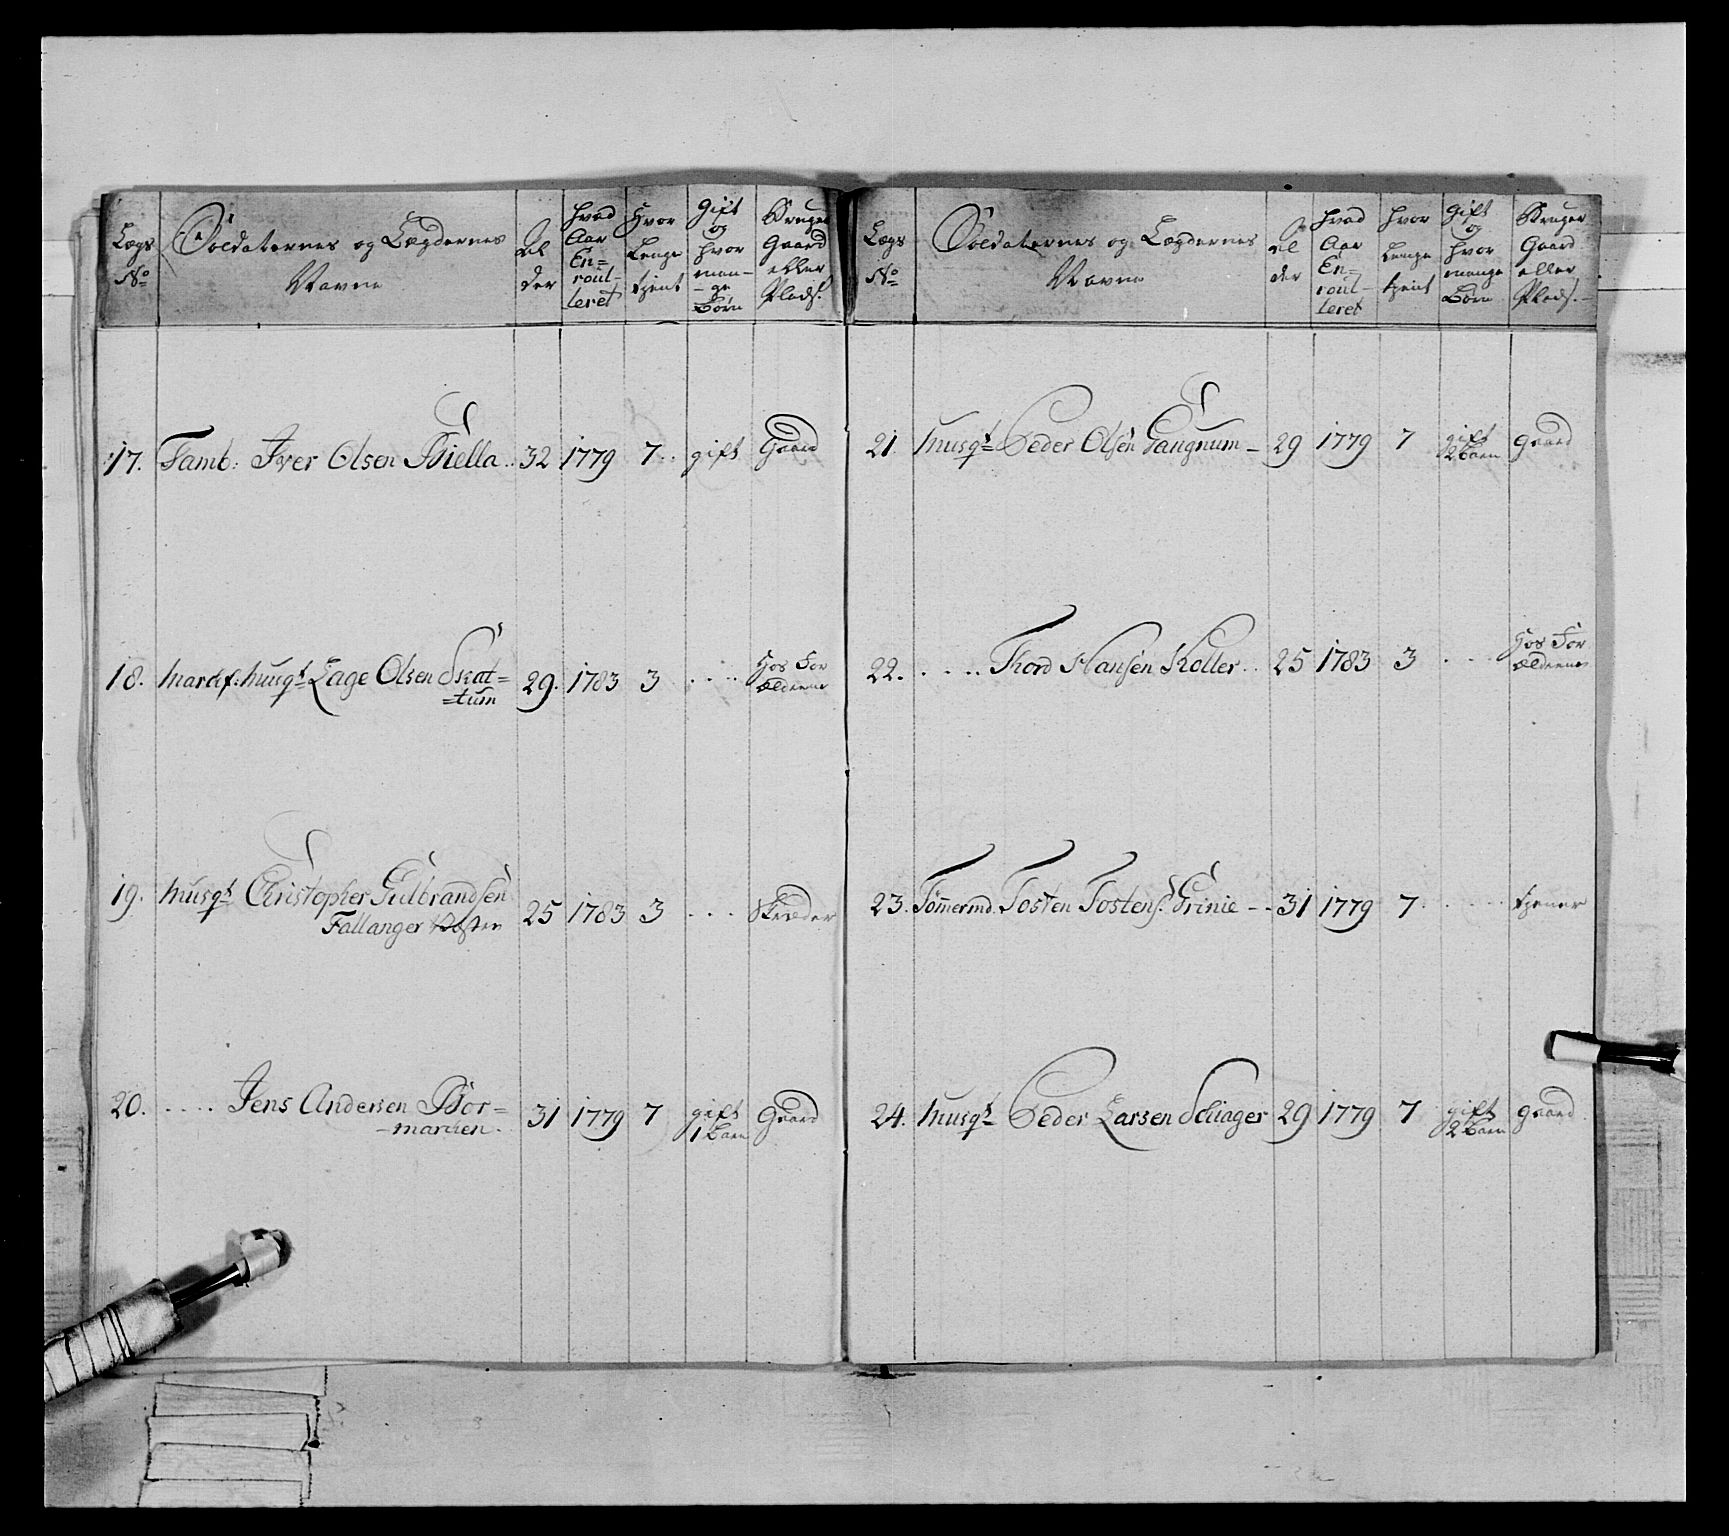 Lægs No | Soldaternes og Lægdernes Navne | Alder | Hvad Aar Enroulleret | Hvor Lenge tjent | Gift og hvor mange Børn | Bruger Gaard eller Plads.
17. Tamb: Iver Olsen Biella 32 1779 7 gift Gaard
18. Markf: Musqt Lage Olsen Skat= 29. 1783 3 .... Hos For
=tum ældrene
19. Musqt Christopher Gulbrandsen
Fallanger Vesten 25 1783 3 ... Skræder
20. .... Jens Andersen Bor= 31 1779 7 gift Gaard
=marchen. 1 Barn
Lægs No | Soldaternes og Lægdernes Navne | Alder | Hvad Aar Enroulleret | Hvor Lenge tjent | Gift og hvor mange Børn | Bruger Gaard eller Plads.
21. Musqt Peder Olsen Gaugnum 29 1779 7 gift gaard
2 Barn
22. .... Thord Hansen Koller 25 1783 3 ... Hos For
ældrene
23. Tømmermd. Tosten Tostens: Grinie 31 1779 7 .... tjener
24. Musqt Peder Larsen Schiager 29 1779 7 gift gaard
2 Barn